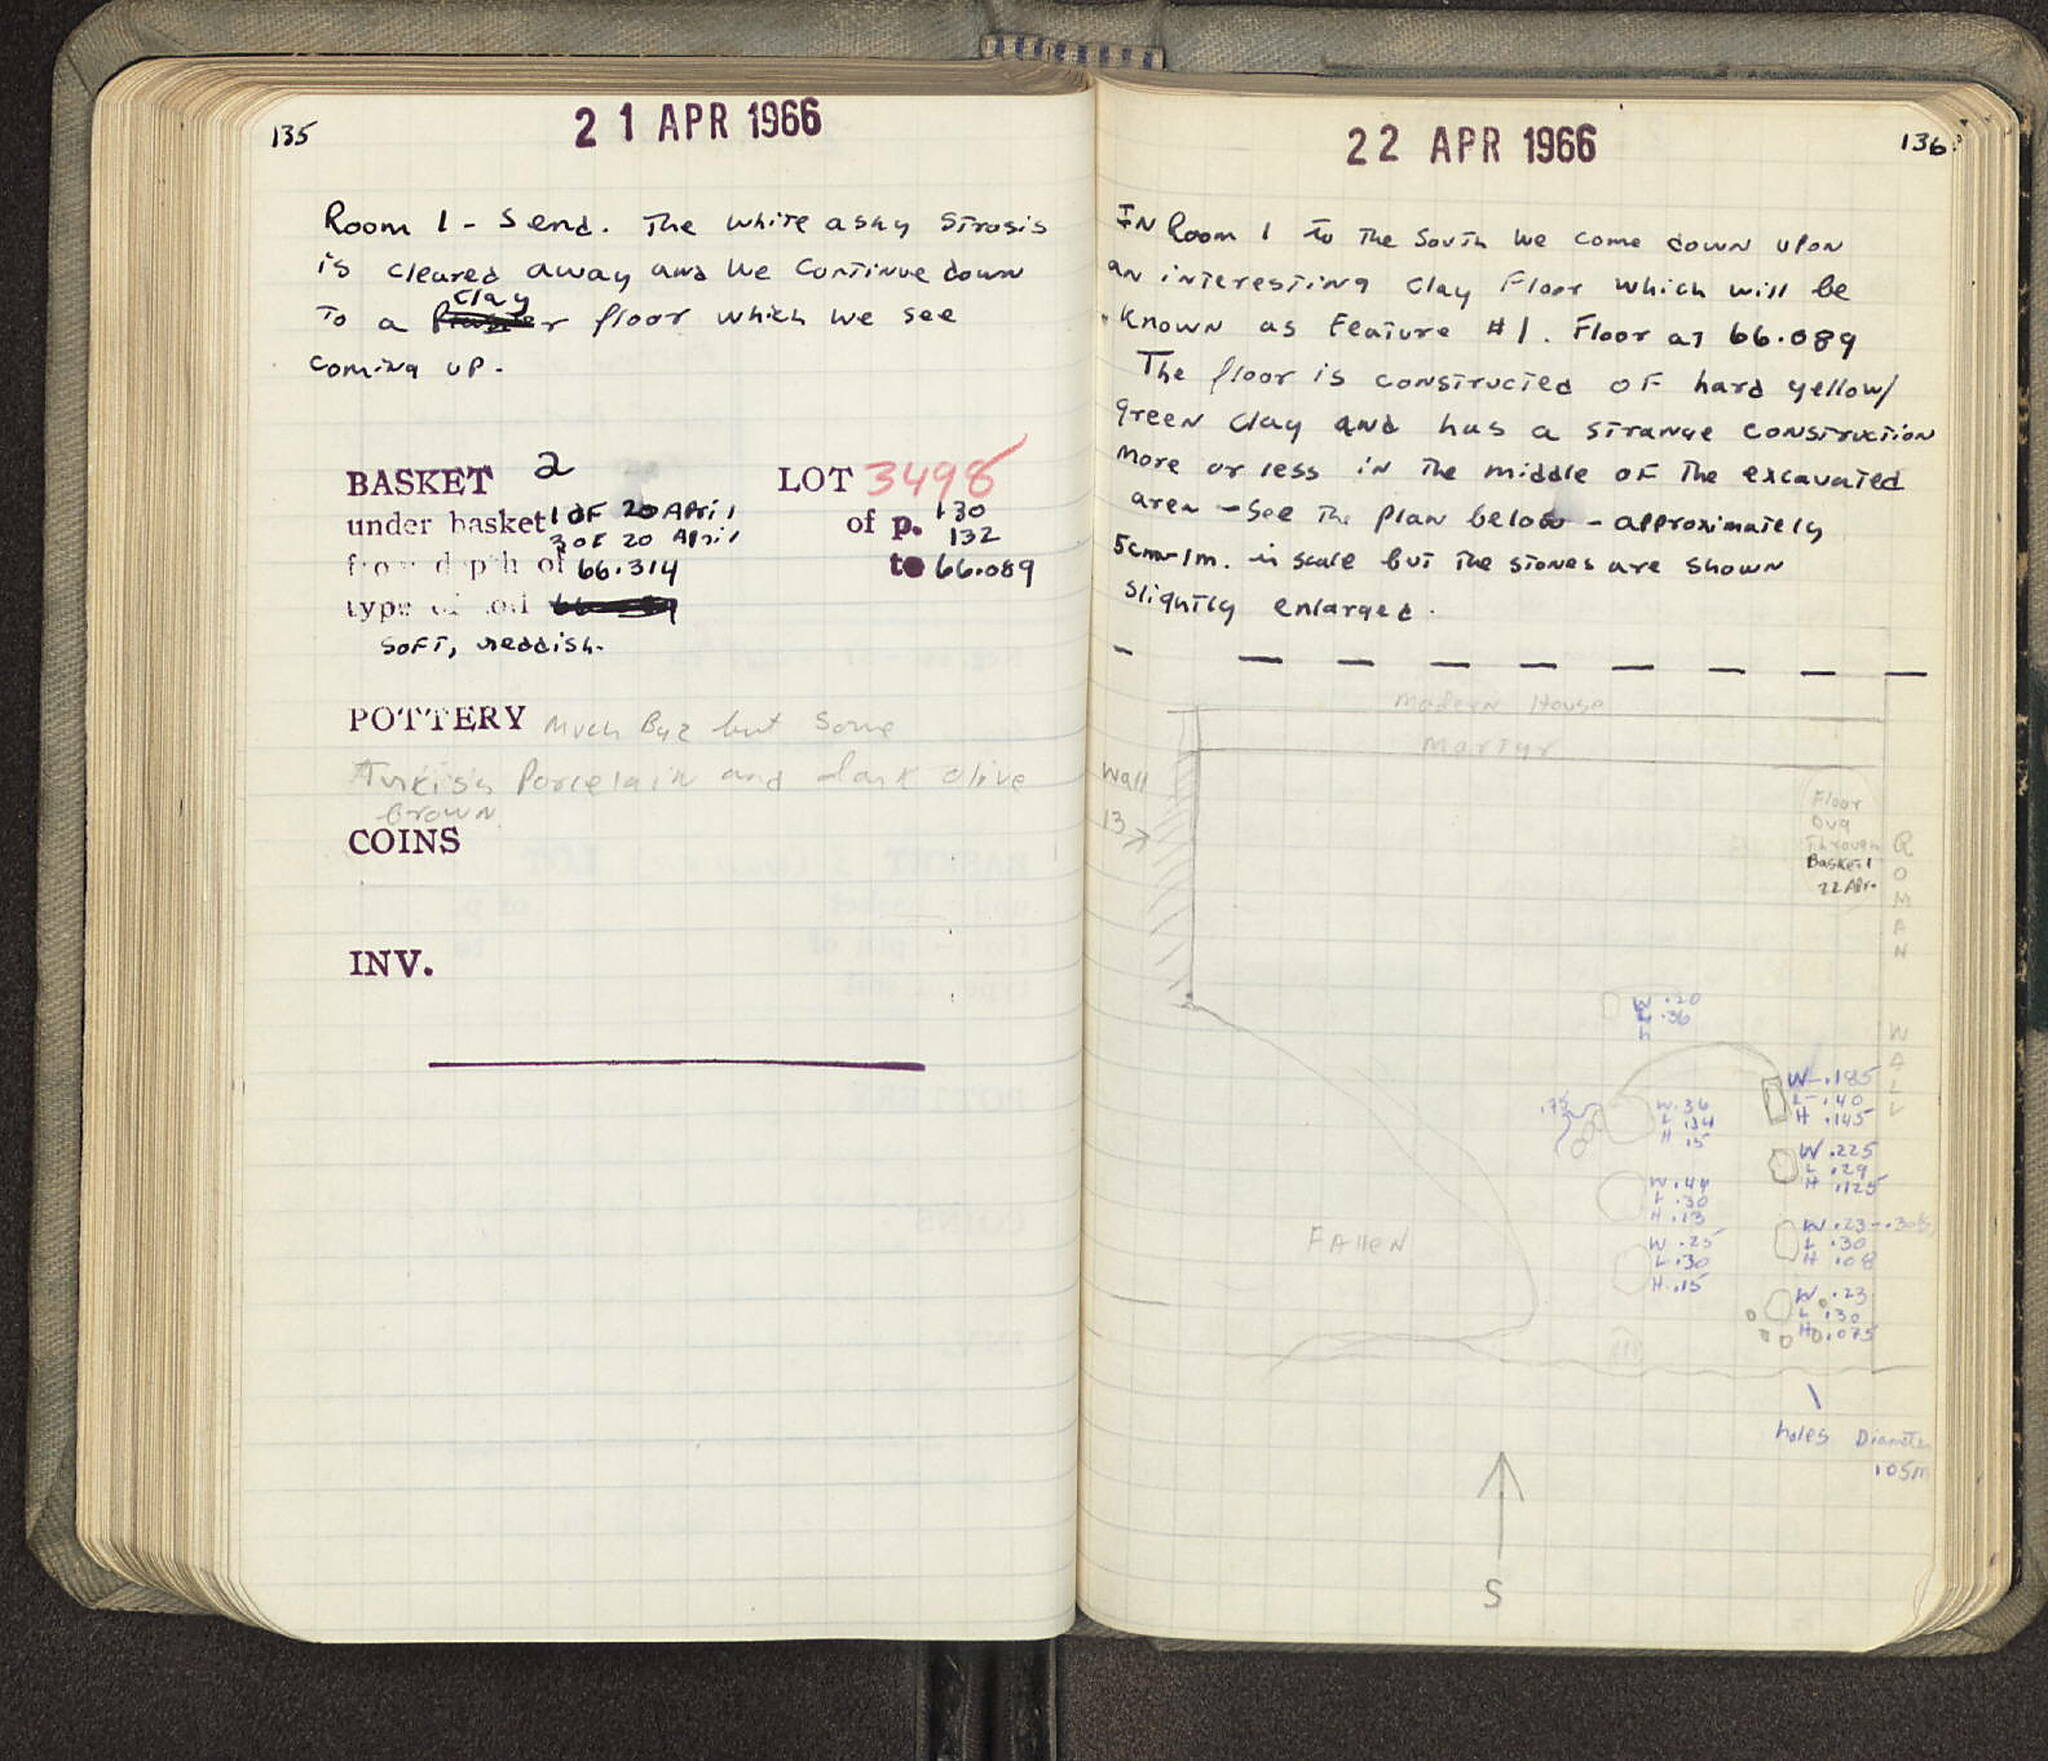 135
21 APR 1966
Room 1 - S end. The white ashy strosis
is cleared away and we continue down
clay
to a floor which we see
coming up.
BASKET 2 LOT 3498
under basket 1 of 20 April of p. 130
3 of 20 April 132
from depth of 66.314 to 66.089
type of soil
soft, reddish.
POTTERY Much Byz but some
Turkish Porcelain and dark olive
brown
COINS
INV.
22 APR 1966
136
In Room 1 to the South we come down upon
an interesting clay Floor which will be
known as Feature #1. Floor at 66.089
The floor is constructed of hard yellow/
green clay and has a strange construction
more or less in the middle of the excavated
area - see the plan below - approximately
5cm-1m. in scale but the stones are shown
slightly enlarged.
Modern House
Martyr
Wall
13
Floor
Dug
Through
Basket 1
22 Apr.
ROMAN WALL
W .20
L .36
h
W-.185
L-.40
H .145
.75
W.36
L .34
H .15
W .225
L .29
H .125
W.44
L .30
H .13
W .23-.30
L .30
H .08
W .25
L .30
H .15
FAllEN
W .23
L .30
H .075
holes Diameter
.05m
S